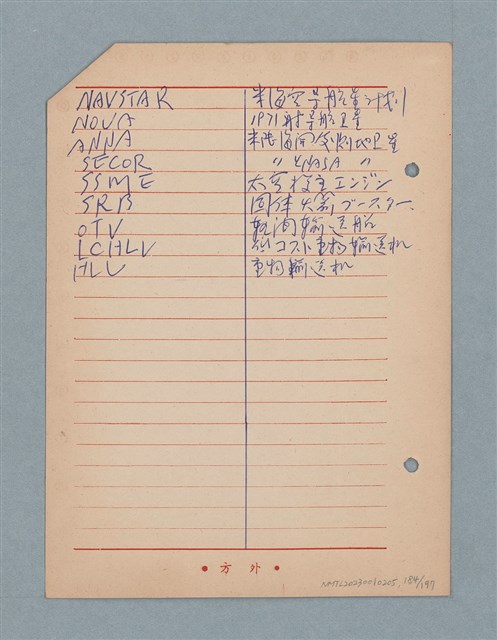 NAVSTAR 米海空导航星计划
NOVA 1971射导航卫星
ANNA 米陸海開発測地卫星
SECOR 〃 &NASA 〃
SSME 主エンジン
SRB 固体火箭ブースター
OTV 軌道間輸送船
LCHLV 低コスト重物輸送机
HLV 重物輸送机
• 方 外 •
NMTL20230010205, 184/197